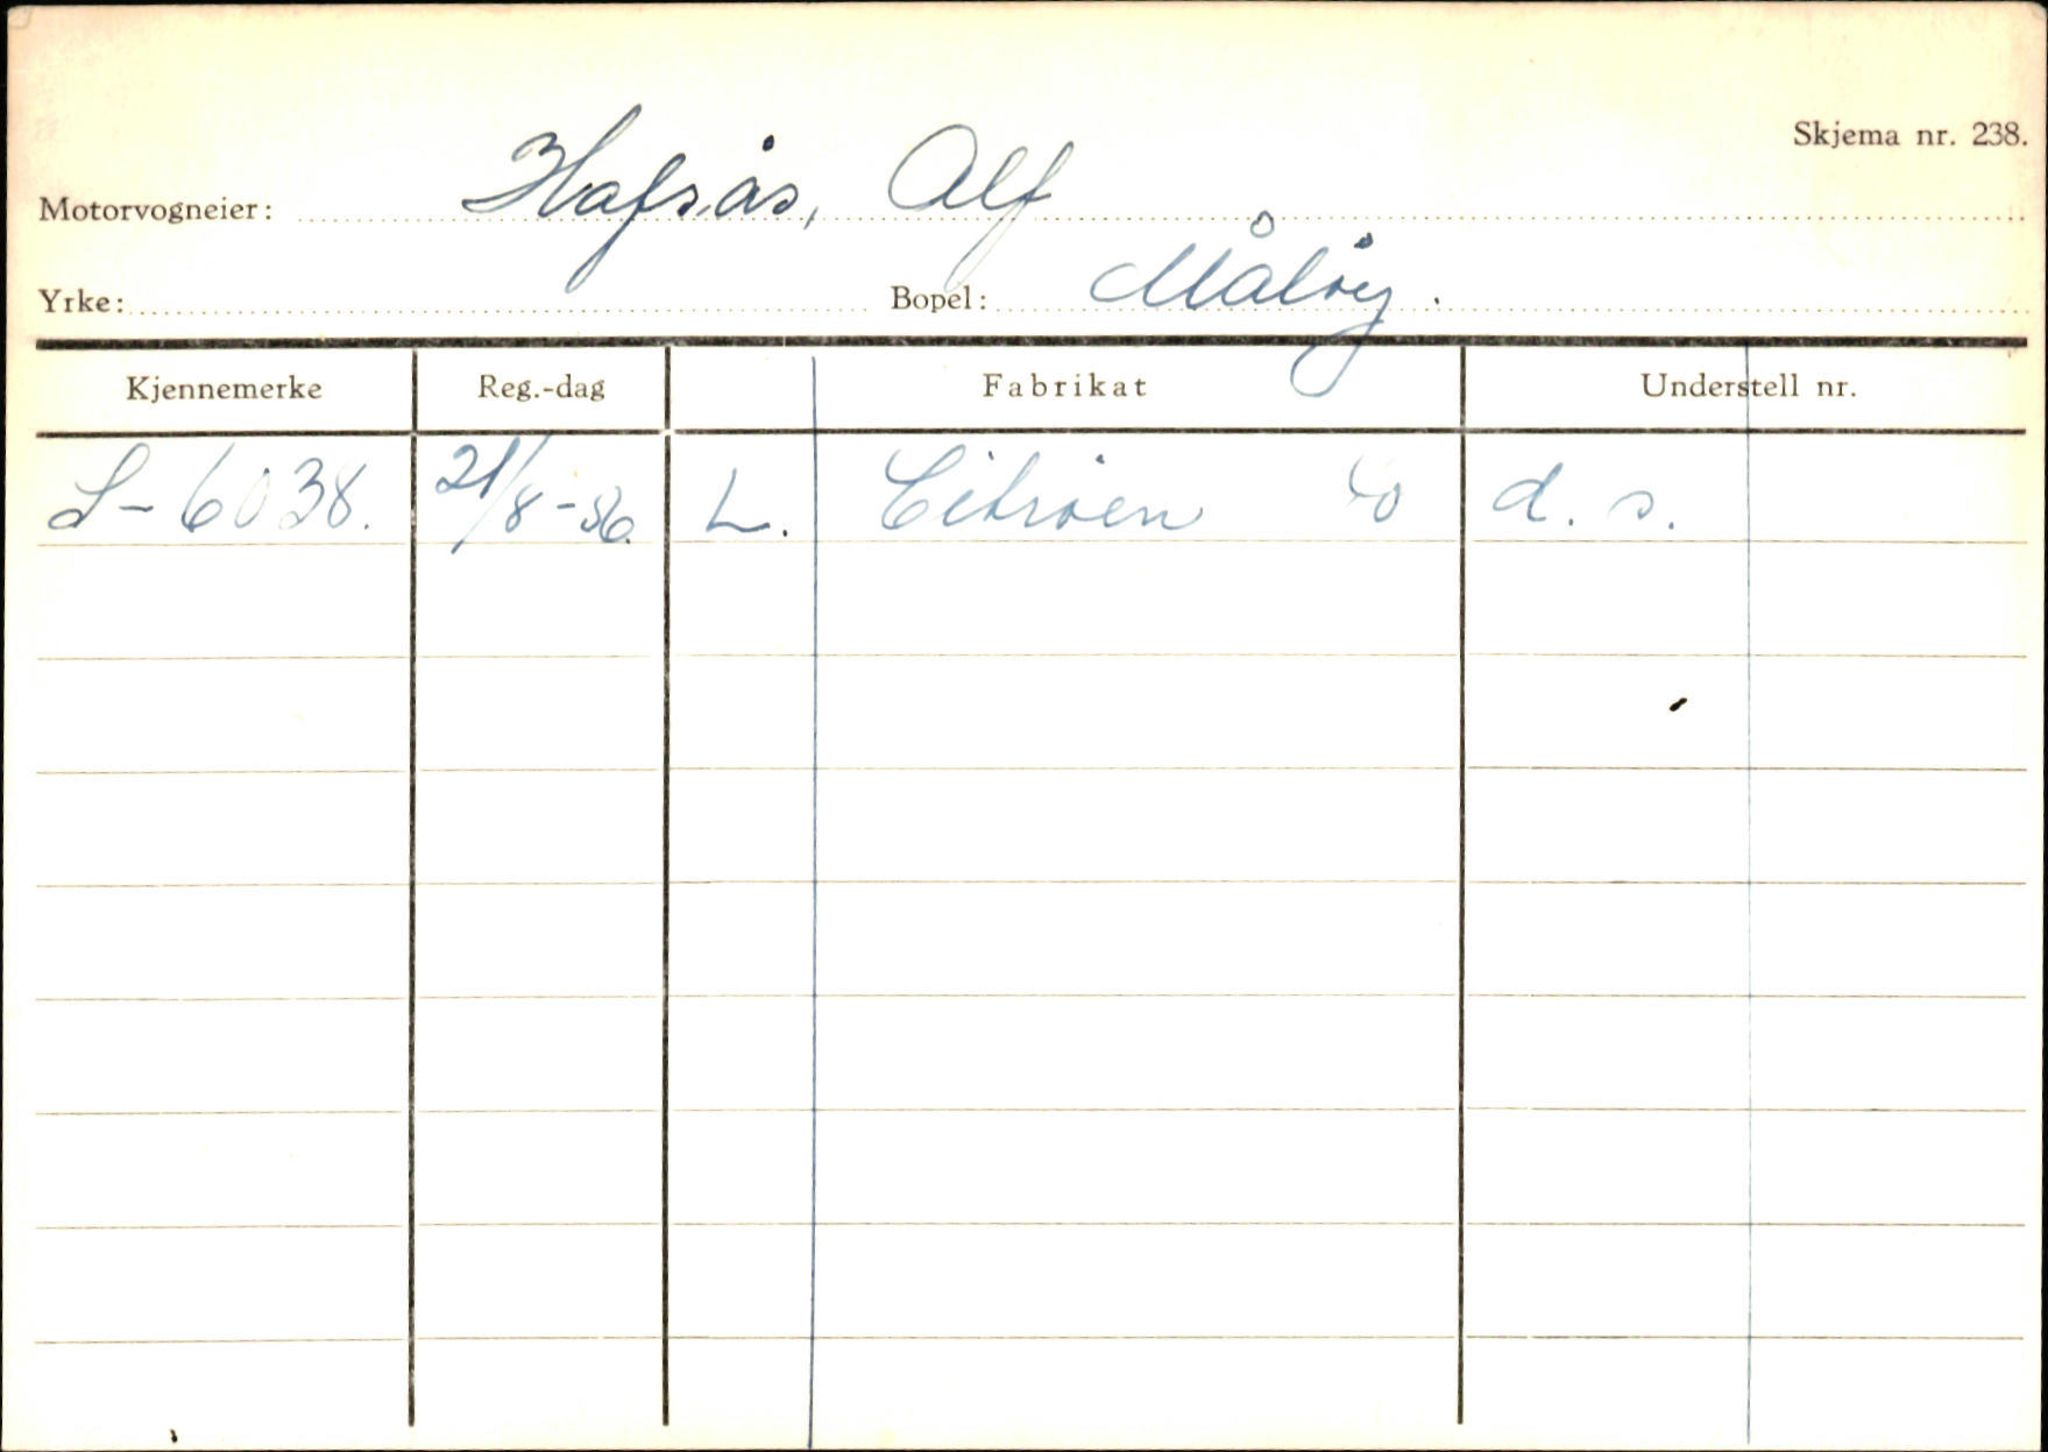 Skjema nr. 238.
Motorvogneier: Hafsås, Alf
Yrke: Bopel: Måløy.
Kjennemerke Reg.-dag Fabrikat Understell nr.
S-6038. 21/8-56. L. Citroen d. s.